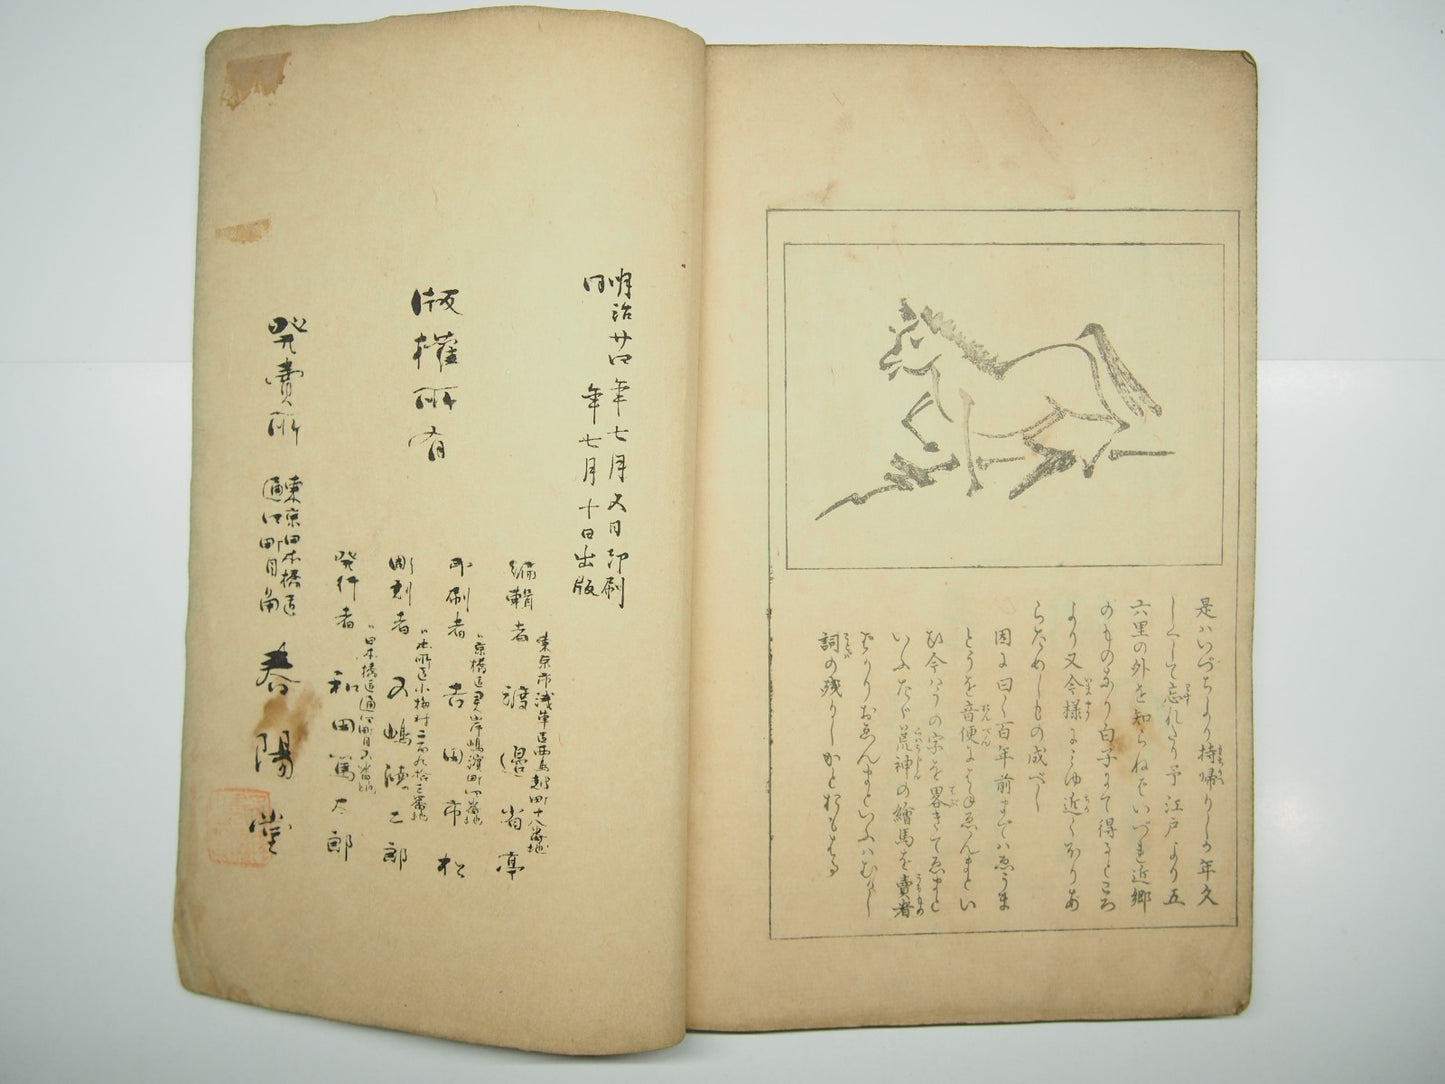 是ハいづちより持帰りしか年久
しくして忘れたり予江戸より五
六里の外を知らねバいづれ近郷
のものなり白子にて得るところ
より又今様にゑがゆ近くありあ
らためしもの成べし
因に曰く百年前までハゑうま
とうを音便にはねゑんまとい
ひ今ハうの字を畧きてゑまと
いふたゞ荒神の繪馬を賣者
ばかりおゑんまといふハむかし
詞の残りしかとおもはる
明治廿四年七月五日印刷
同年七月十日出版
版權所有
編輯者 東京市淺草區西鳥越町十八番地 渡邉省亭
印刷者 〃京橋區霊岸嶋濱町四番地 吉田市松
彫刻者 〃本所區小梅村二百九拾三番地 五嶋徳二郎
発行者 〃日本橋區通四町目五番地 和田篤太郎
発賣所 東京日本橋區通四町目角 春陽堂